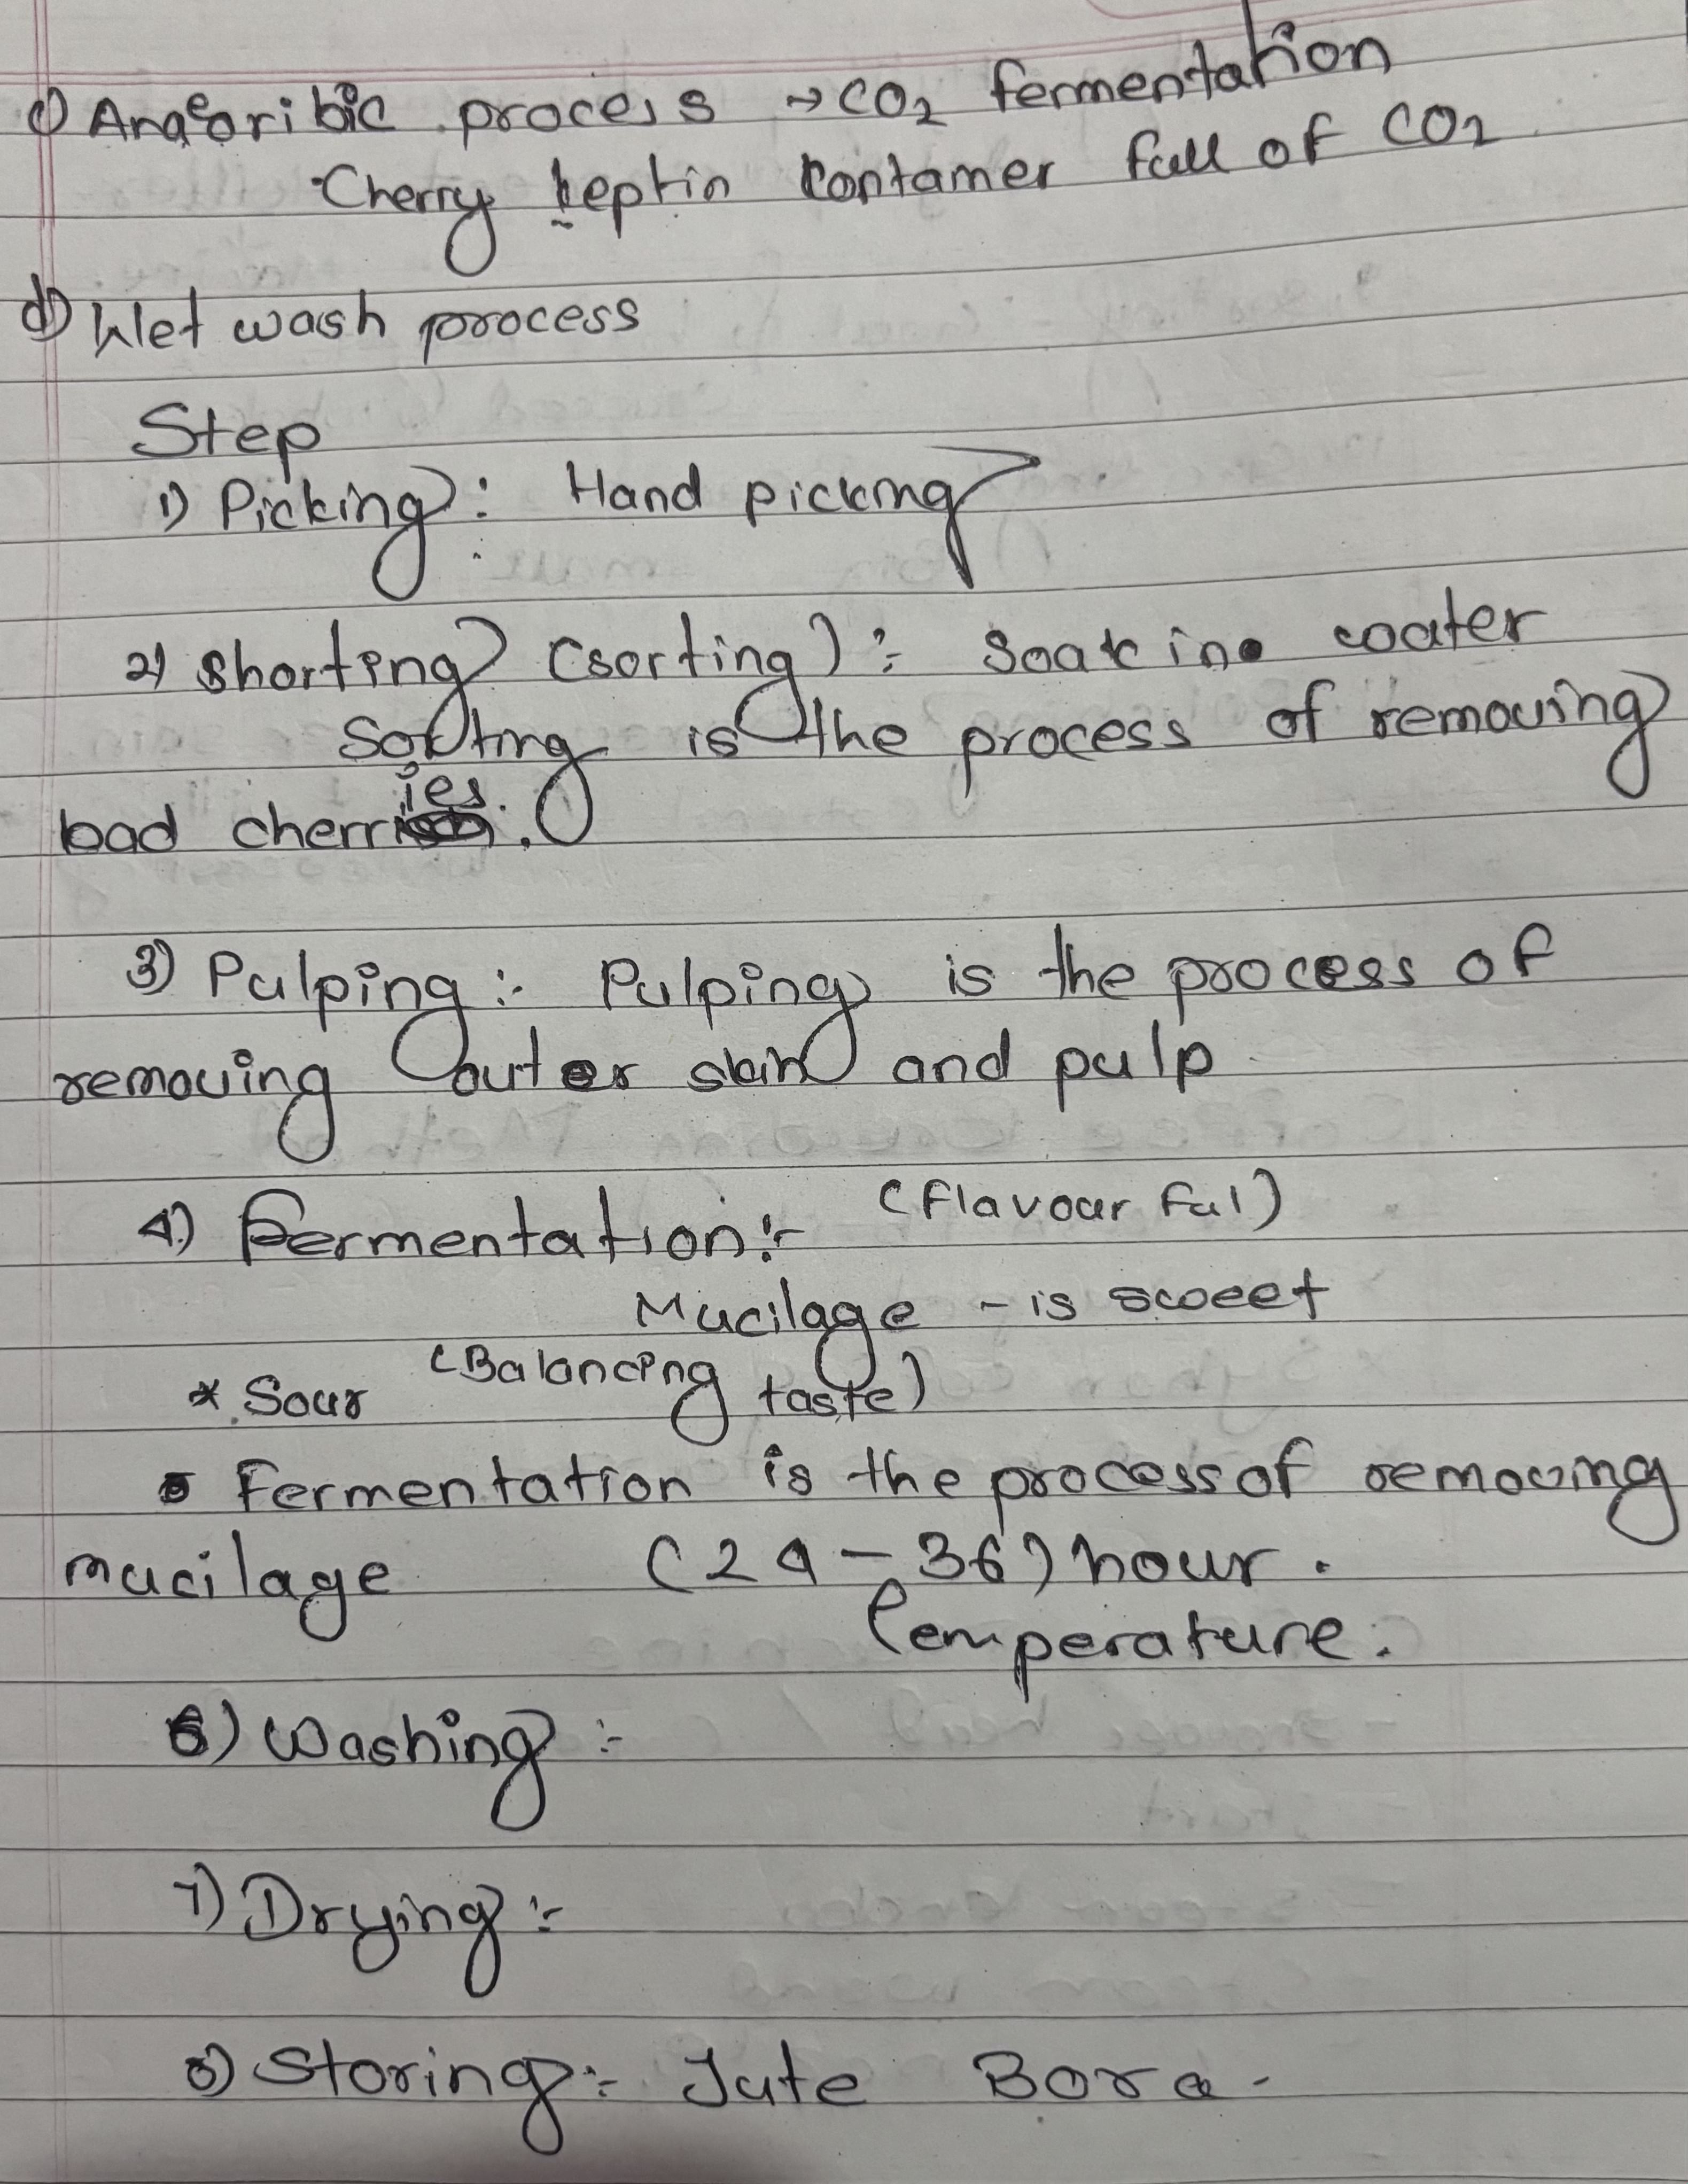 c) Anaeoribic process → CO2 fermentation
Cherry kept in Container full of CO2
d) Wet wash process
Step
1) Picking : Hand picking
2) Shorting (sorting) :- Soak in water
Sorting is the process of removing
bad cherries.
3) Pulping :- Pulping is the process of
removing outer skin and pulp
4) Fermentation :- (flavour ful)
Mucilage - is sweet
* Sour (Balancing taste)
• Fermentation is the process of removing
mucilage (24-36) hour.
temperature.
6) Washing :-
7) Drying :-
8) Storing :- Jute Bora.